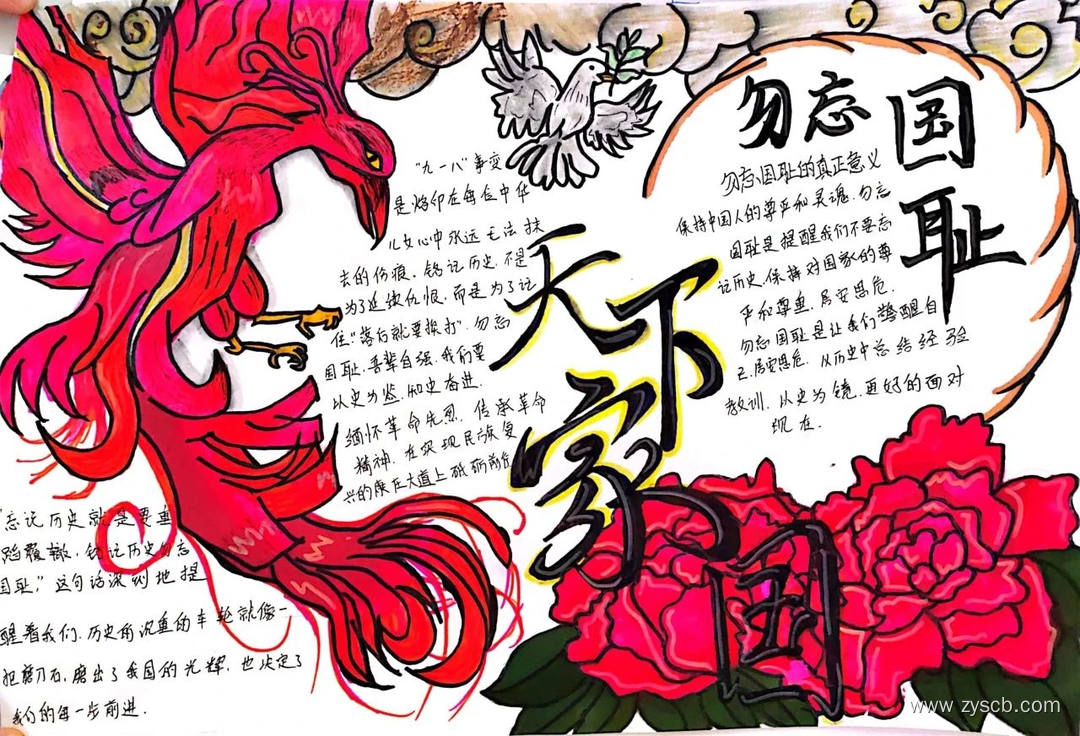 勿忘
国
耻
"九一八"事变
是烙印在每位中华
儿女心中永远无法抹
去的伤痕、铭记历史.不是
为了延续仇恨.而是为了记
住"落后就要挨打".勿忘
国耻.吾辈自强.我们要
以史为鉴.知史奋进.
缅怀革命先烈.传承革命
精神.在实现民族复
兴的康庄大道上砥砺前行
天下
家
国
勿忘国耻的真正意义
保持中国人的尊严和灵魂.勿忘
国耻是提醒我们不要忘
记历史.保持对国家的尊
严和尊重.居安思危.
勿忘国耻是让我们警醒自
己.居安思危.从历史中总结经验
教训.从史为镜.更好的面对
现在.
"忘记历史就是要重
蹈覆辙.铭记历史勿忘
国耻;"这句话深刻地提
醒着我们.历史用沉重的车轮就像一
把磨刀石.磨出了我国的光辉.也决定了
我们的每一步前进.
www.zyscb.com